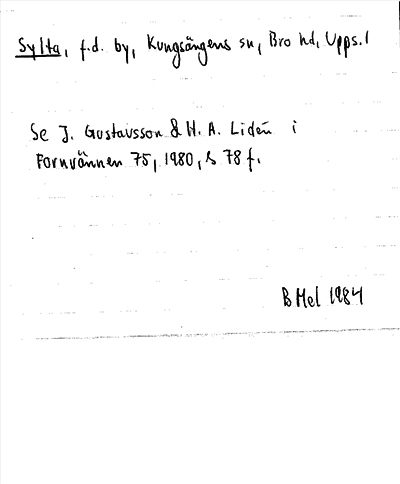 Sylta, f.d. by, Kungsängens sn, Bro hd, Upps. l
Se J. Gustavsson & H. A. Lidén i
Fornvännen 75, 1980, s 78 f.
B Mel 1984